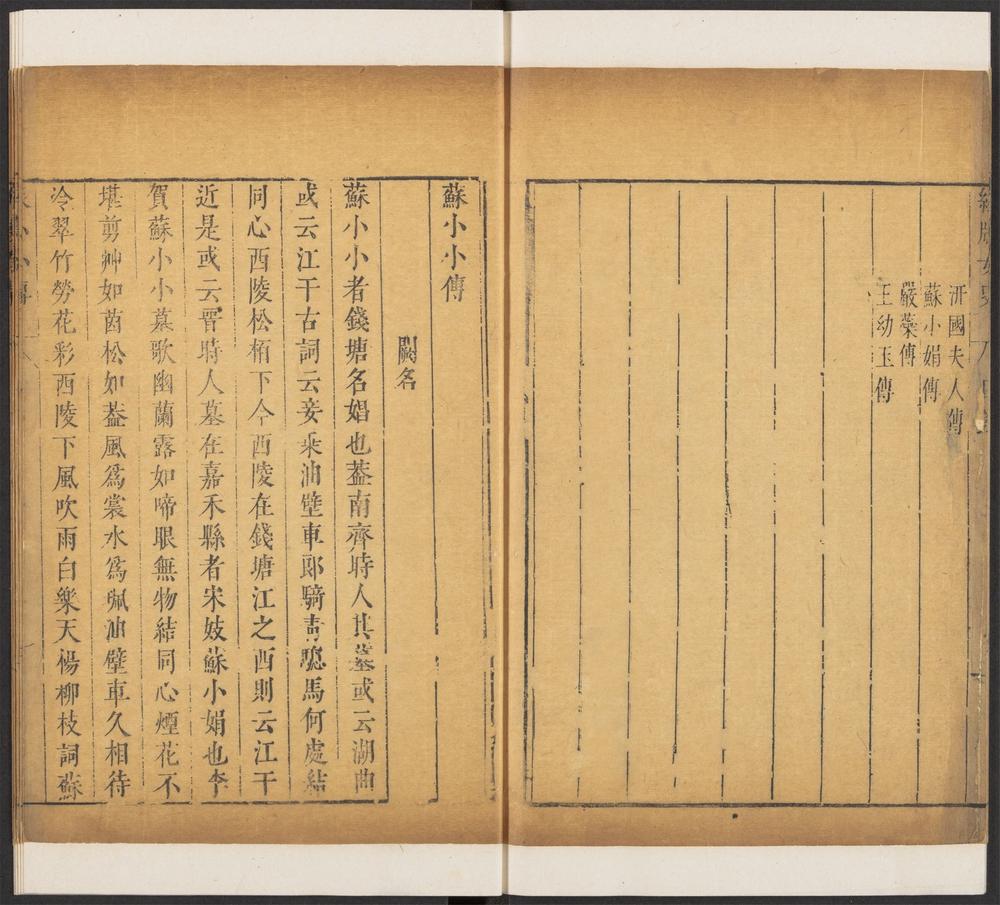 汧國夫人傳
蘇小娟傳
嚴蘂傳
王幼玉傳
蘇小小傳
闕名
蘇小小者錢塘名娼也葢南齊時人其墓或云湖曲
或云江干古詞云妾乗油壁車郎騎靑驄馬何處結
同心西陵松栢下今西陵在錢塘江之西則云江干
近是或云晉時人墓在嘉禾縣者宋妓蘇小娟也李
賀蘇小小墓歌幽蘭露如啼眼無物結同心煙花不
堪剪艸如茵松如葢風爲裳水爲珮油壁車久相待
冷翠竹勞花彩西陵下風吹雨白樂天楊柳枝詞蘇